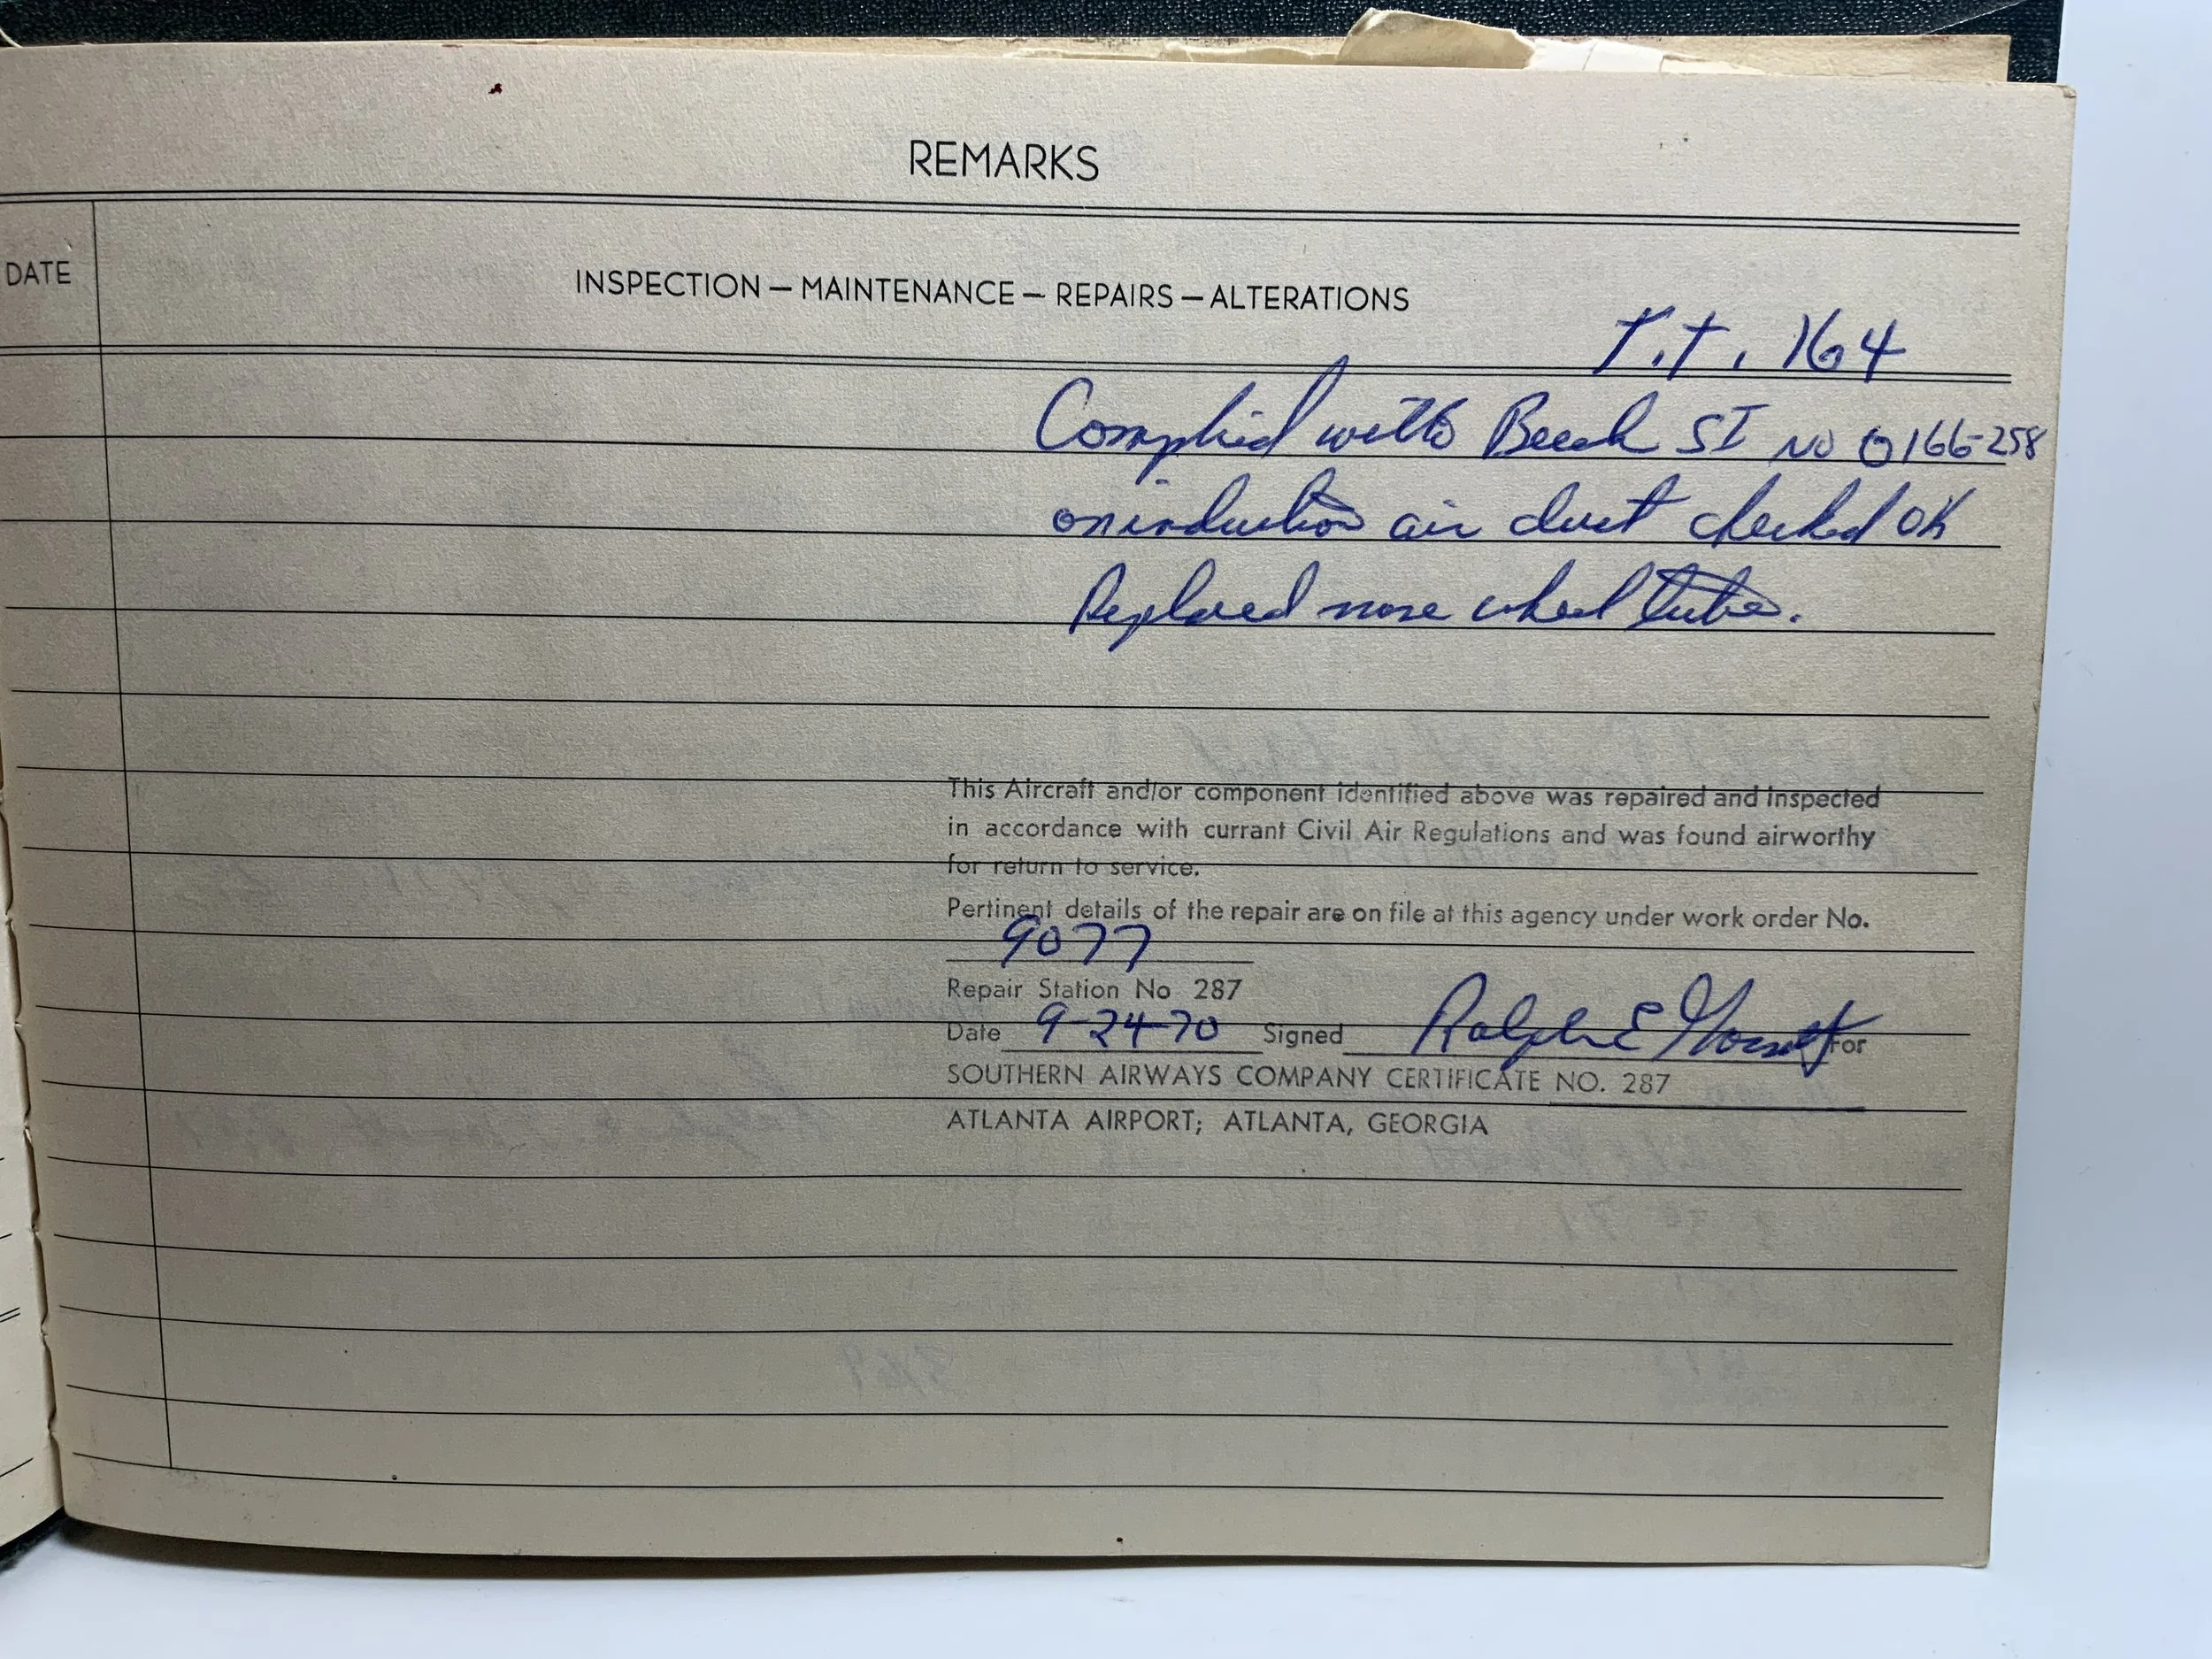 REMARKS
DATE
INSPECTION — MAINTENANCE — REPAIRS — ALTERATIONS
T.T. 164
Complied with Beech SI NO 0166-258
on induction air duct checked OK
Replaced nose wheel tube.
This Aircraft and/or component identified above was repaired and inspected
in accordance with currant Civil Air Regulations and was found airworthy
for return to service.
Pertinent details of the repair are on file at this agency under work order No.
9077
Repair Station No 287
Date 9-24-70 Signed Ralph E For
SOUTHERN AIRWAYS COMPANY CERTIFICATE NO. 287
ATLANTA AIRPORT; ATLANTA, GEORGIA